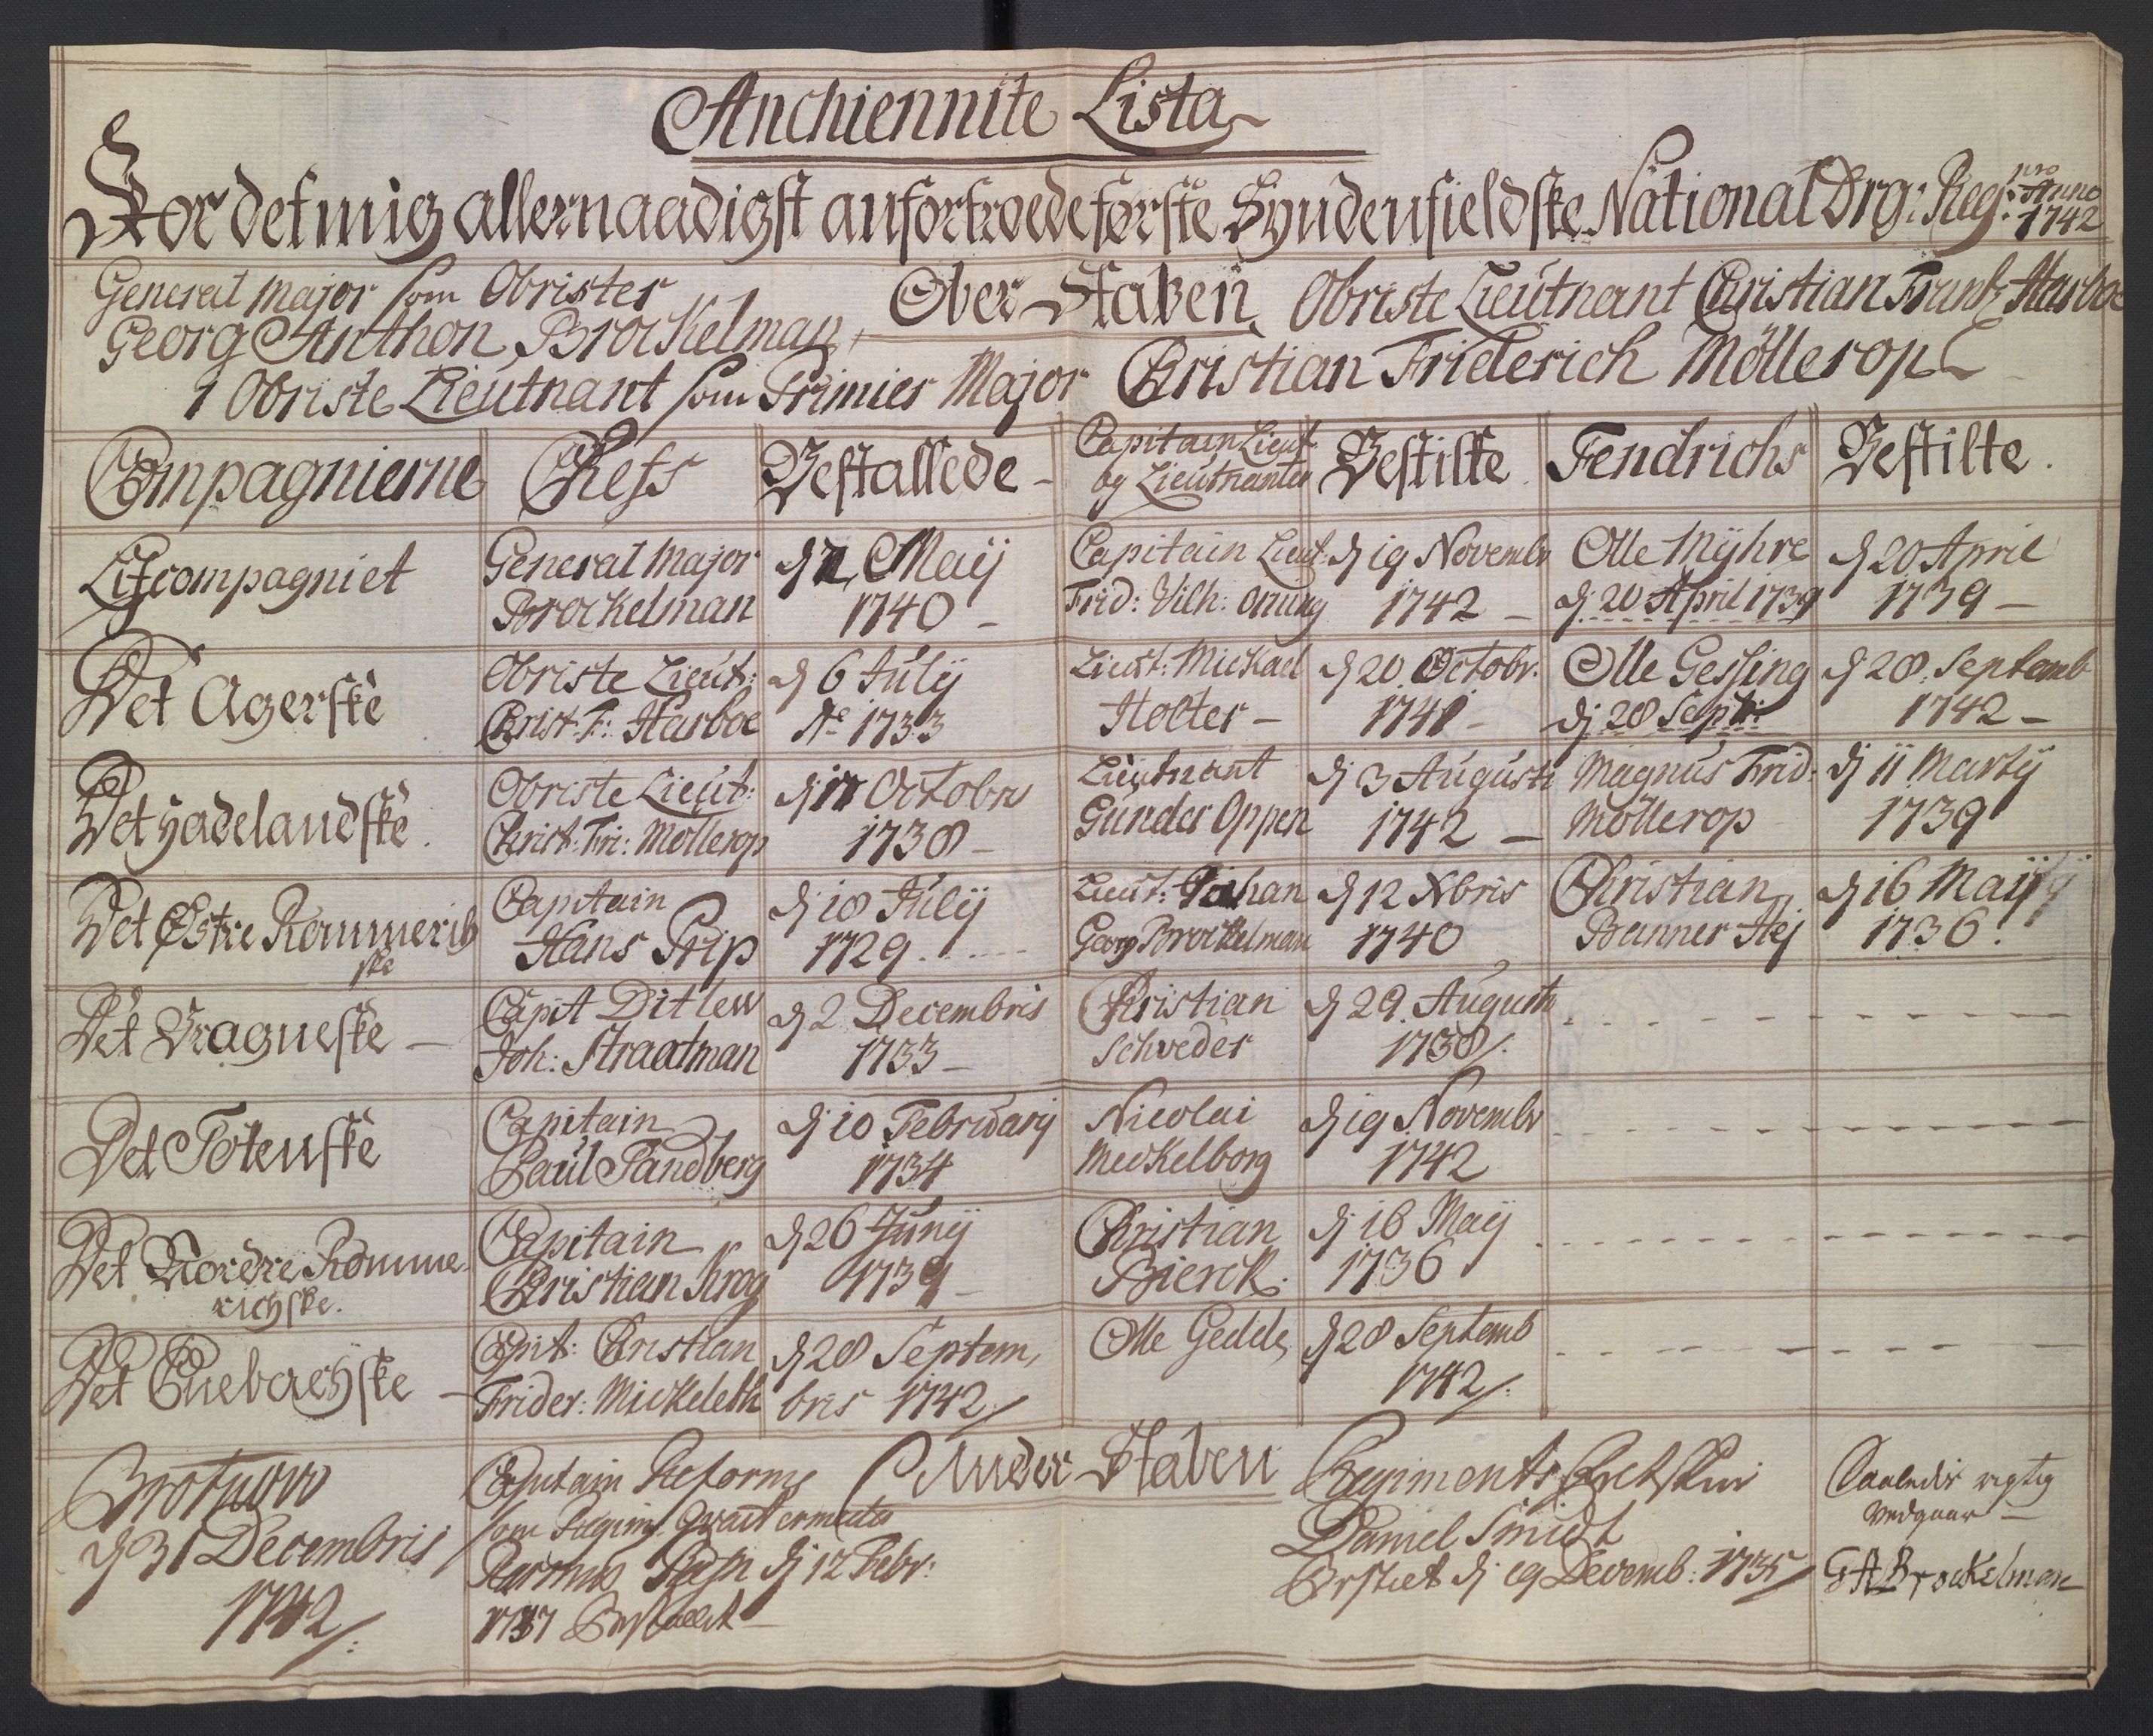 Anchiennite Lista
For det mig allernaadigst anfortroede første Syndenfieldske National Drg: Reg: pro Anno 1742
General Major som Obrister
Georg Anthon Brockelman,
Ober Staben
Obriste Lieutnant Christian Frantz Harboe
1 Obriste Lieutnant som Primier Major Christian Friderich Möllerop
Compagnierne
Chefs
Bestallede -
Capitain Lieut:
og Lieutnanter
Bestilte
Fendrichs
Bestilte.
Lifcompagniet
General Major
Brockelman
dj Maij
1740 -
Capitain Lieut:
Frid: Vilh:
dj 19 Novembr
1742 -
Olle Mÿhre
dj 20 April 1739
dj 20 April
1739 -
Det Agerske
Obriste Lieut:
Christ: F: Harboe
dj 6 Julij
Ao 1733
Lieut: Mickael
Holter -
dj 20 Octobr:
1741 -
Olle Gessing
dj 28 Septb:
dj 28. Septemb
1742 -
Det Hadelandske.
Obriste Lieut:
Christ: Fri: Möllerop
dj Octobris
1738 -
Lieutnant
Gunder Oppen
dj 3 Augusti
1742 -
Magnus Frid:
Möllerop
dj 11 Martij
1739
Det Østre Rommerich
ske
Capitain
Hans Prip
dj 18 Julij
1729.
Lieut: Johan
Georg Brockelman
dj 12 Xbris
1740
Christian
Banner Hej
dj 16 Maij
1736.
Det Vragneske -
Capit Ditlew
Joh: Straatman
dj 2 Decembris
1733 -
Christian
Schweder
dj 29. Augusti
1738/.
Det Totenske
Capitain
Paul Sandberg
dj 10 Februarij
1734
Nicolai
Meckelborg
dj 19 Novembr
1742
Det Nordre Romme-
richske.
Capitain
Christian Krog
dj 26 Junij
1739 -
Christian
Bierck:
dj 16 Maij
1736
Det Enebachske -
Capit: Christian
Frider: Mickeleth
dj 28 Septem,
bris 1742/
Olle Gedde
dj 28 Septemb
1742/.
Brotwow
dj 31 Decembris
1742/:
Capitain Reforme
som Regim: Qvartermester
Rasmus dj 12 Febr:
1737 Bestallet -
Under Staben
Regiments
Daniel Smidt
Bestilet dj 19 Decemb: 1735/
Saaledis rigtig
vedgaar -
GABrockelman